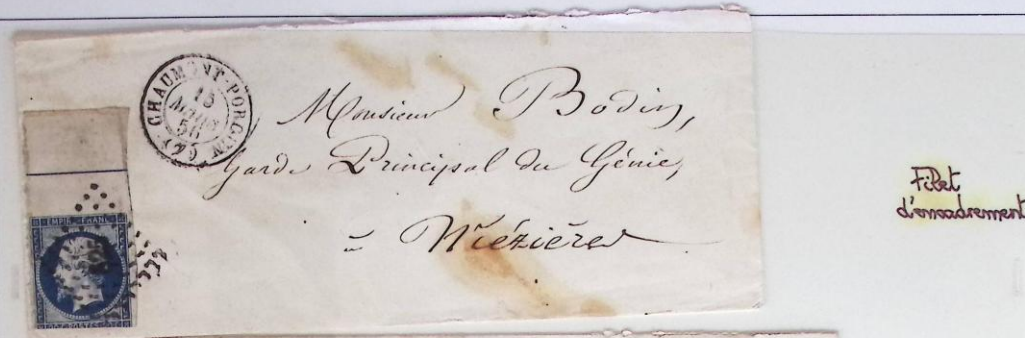 CHAUMONT-PORCIEN (7)
15
MARS
56
Monsieur Bodin,
Garde Principal du Génie,
à Mézières
EMPIRE FRANC
20 C POSTES 20 C
Filet
d'encadrement